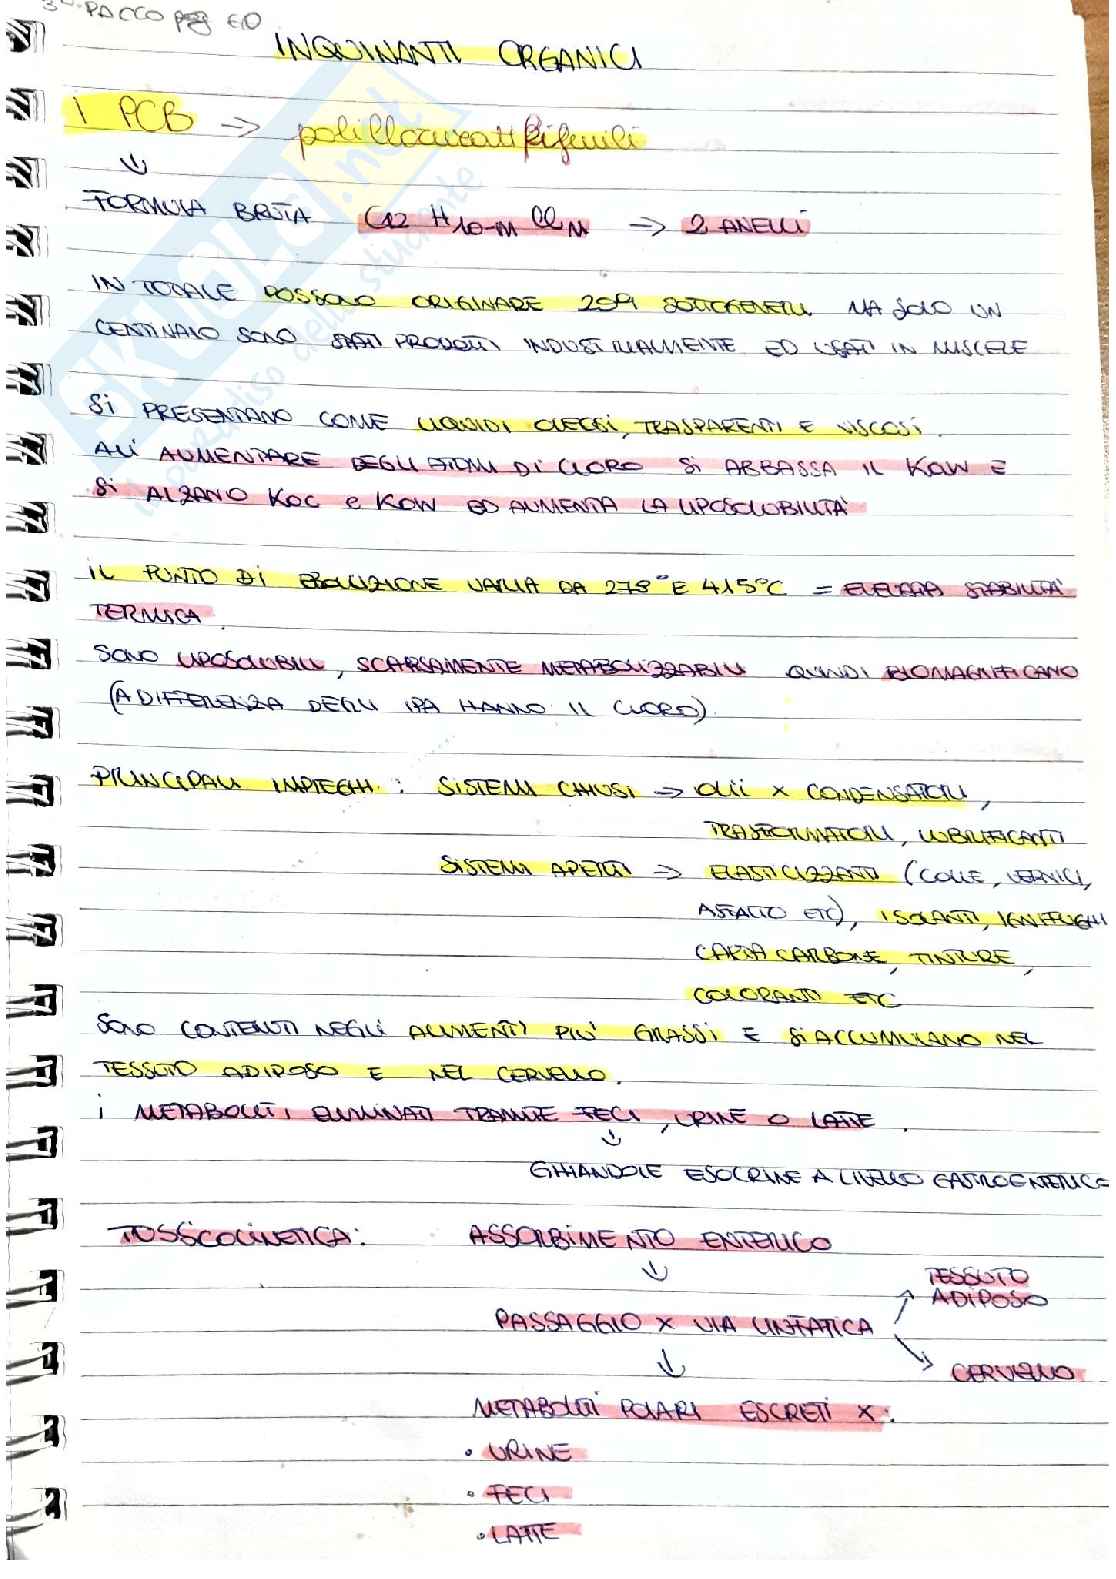 3° PACCO pag 60
INQUINANTI ORGANICI
I PCB → policlorurati bifenili
↓
FORMULA BRUTA C12 H10-N ClN → 2 ANELLI
IN TOTALE POSSONO ORIGINARE 209 SOTTOGENERI MA SOLO UN
CENTINAIO SONO STATI PRODOTTI INDUSTRIALMENTE ED USATI IN MISCELE
Si PRESENTANO COME LIQUIDI OLEOSI, TRASPARENTI E VISCOSI.
ALL'AUMENTARE DEGLI ATOMI DI CLORO Si ABBASSA IL KAW E
Si ALZANO KOC e KOW ED AUMENTA LA LIPOSOLUBILITÀ
IL PUNTO DI EBOLLIZIONE VARIA DA 278° E 415°C = ELEVATA STABILITÀ
TERMICA.
SONO LIPOSOLUBILI, SCARSAMENTE METABOLIZZABILI QUINDI BIOMAGNIFICANO
(A DIFFERENZA DEGLI IPA HANNO IL CLORO).
PRINCIPALI IMPIEGHI: SISTEMI CHIUSI → OLII X CONDENSATORI,
TRASFORMATORI, LUBRIFICANTI
SISTEMI APERTI → ELASTICIZZANTI (COLLE, VERNICI,
ASFALTO ETC), ISOLANTI, IGNIFUGHI
CARTA CARBONE, TINTURE,
COLORANTI ETC
SONO CONTENUTI NEGLI ALIMENTI PIÙ GRASSI E Si ACCUMULANO NEL
TESSUTO ADIPOSO E NEL CERVELLO.
I METABOLITI ELIMINATI TRAMITE FECI, URINE O LATTE.
↓
GHIANDOLE ESOCRINE A LIVELLO GASTROENTERICO
TOSSICOCINETICA: ASSORBIMENTO ENTERICO
↓
TESSUTO
ADIPOSO
PASSAGGIO X VIA LINFATICA
CERVELLO
↓
METABOLITI POLARI ESCRETI X:
• URINE
• FECI
• LATTE
SKUOLA.net
il paradiso dello studente